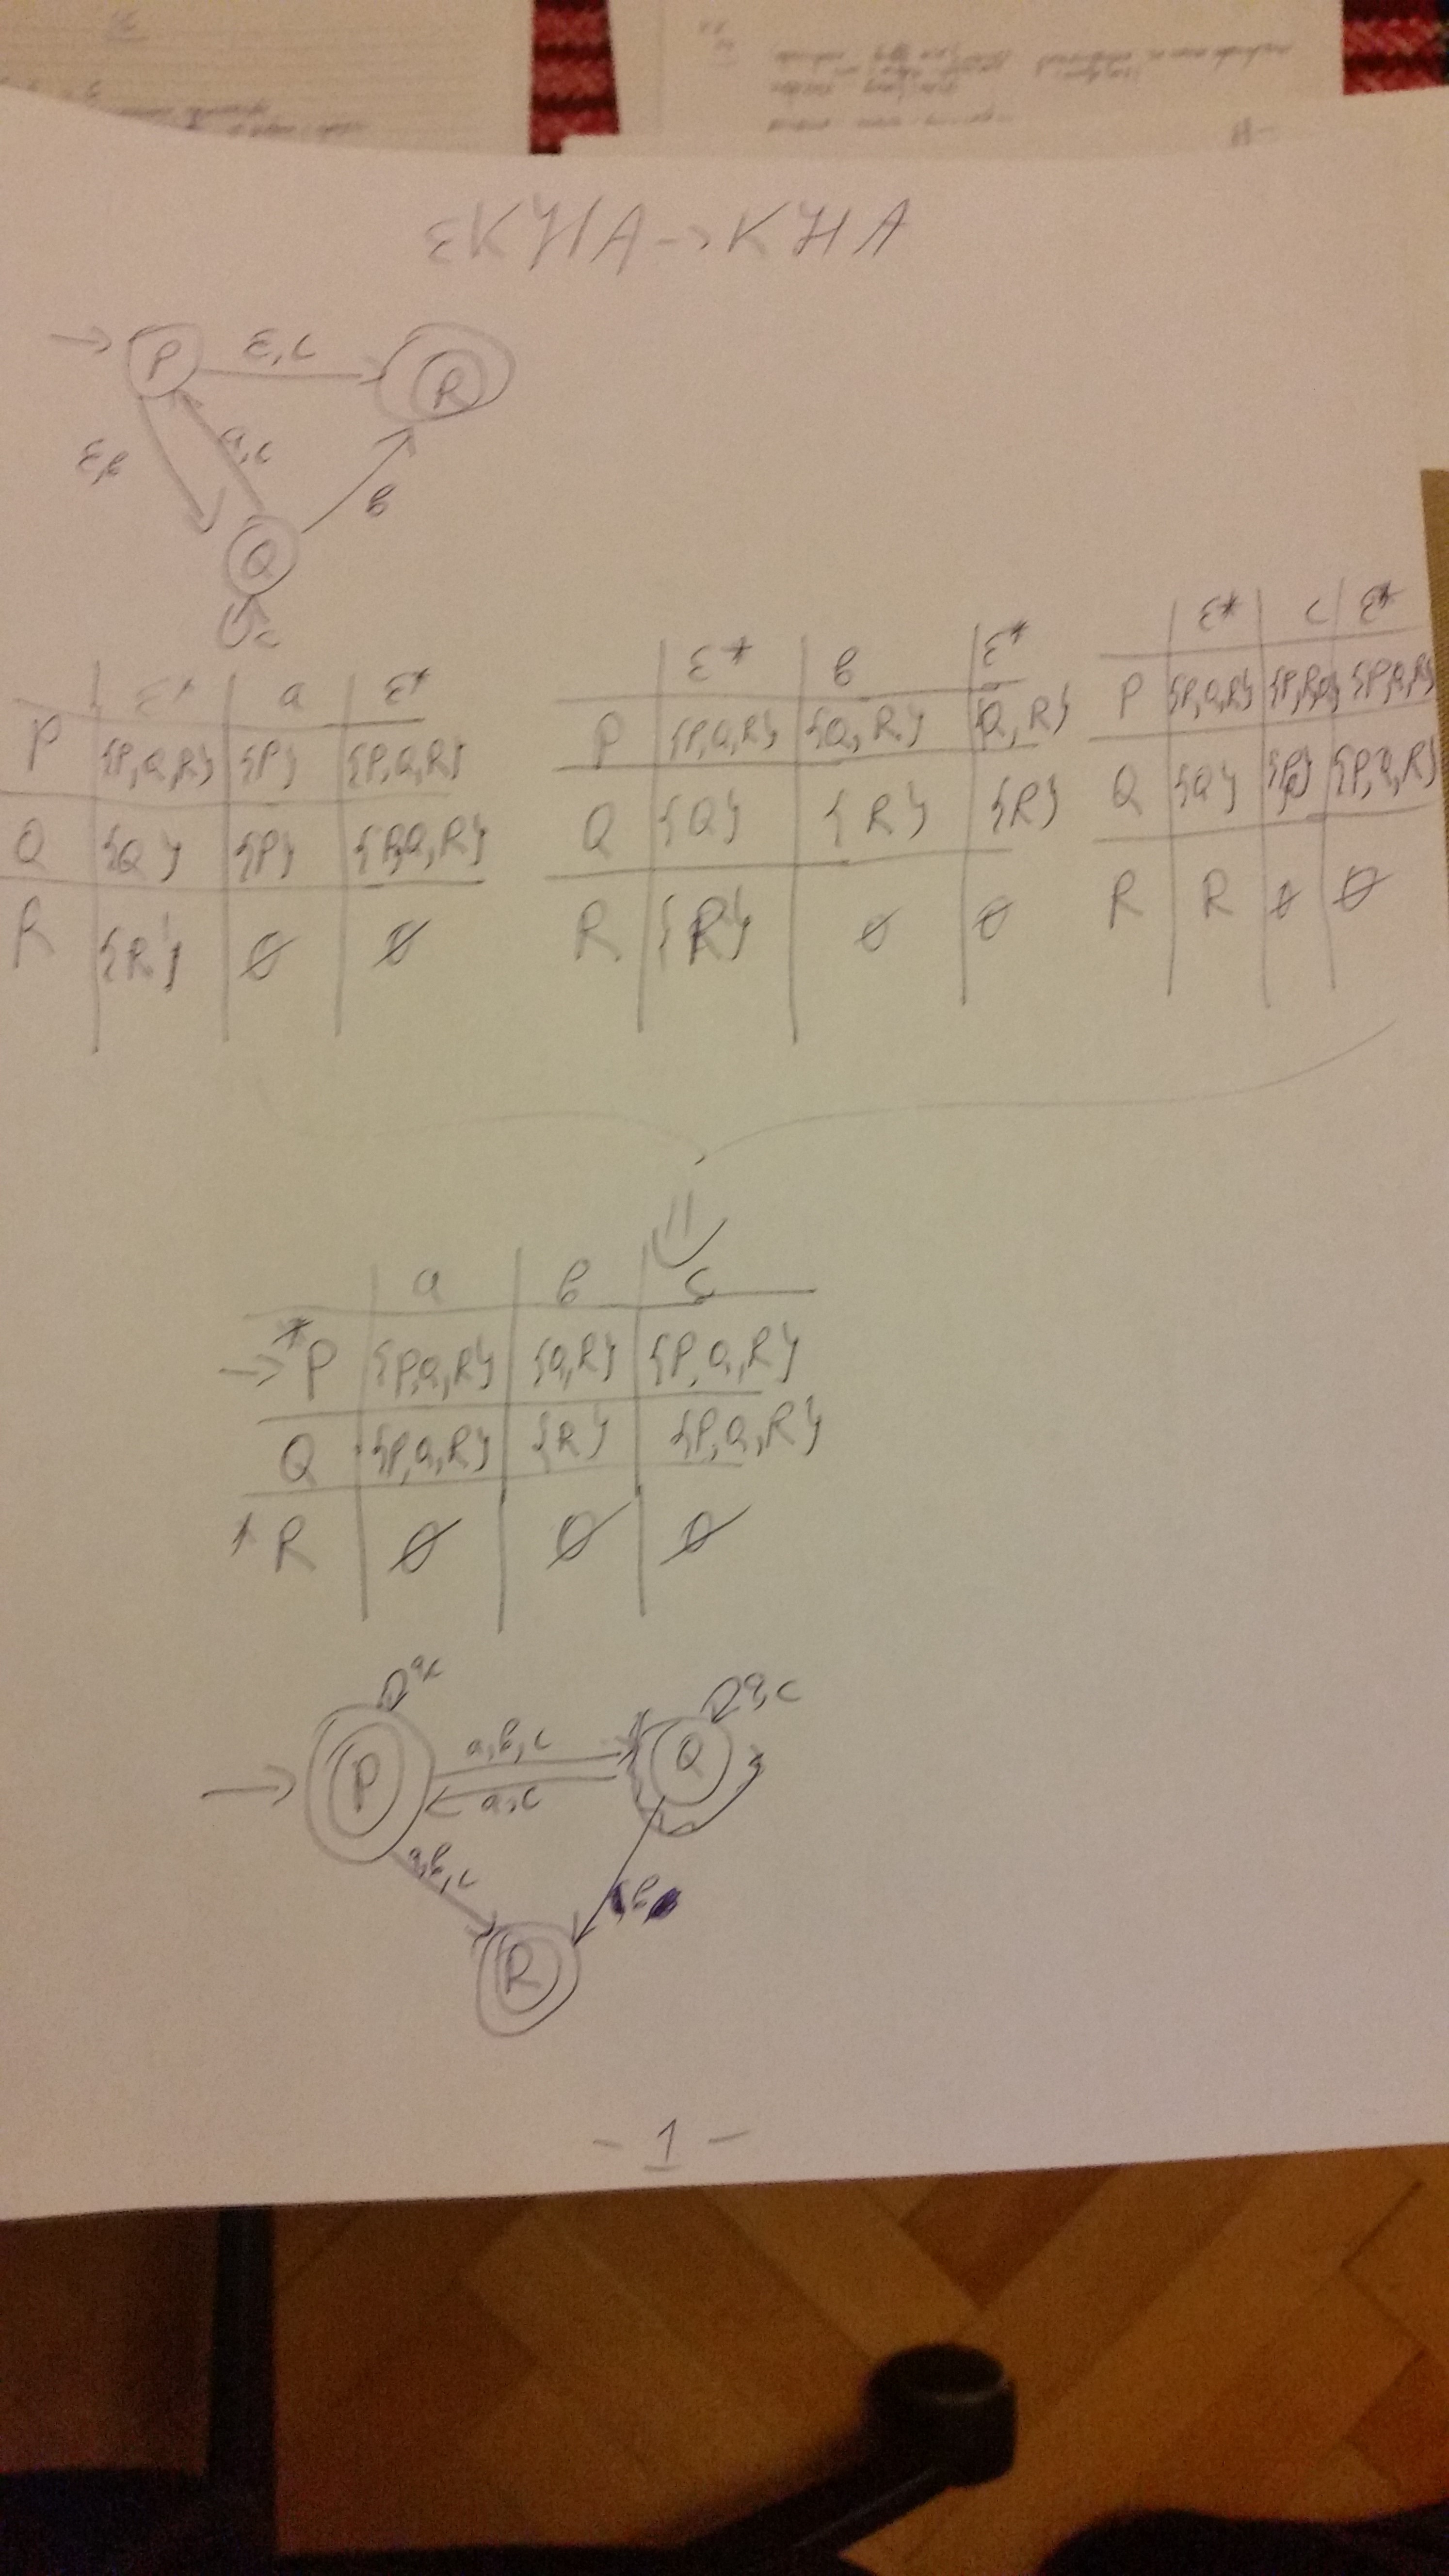 εКНА -> КНА
P ε,c R
ε,b a,c b
Q
c
ε* a ε*
P {P,Q,R} {P} {P,Q,R}
Q {Q} {P} {P,Q,R}
R {R} ∅ ∅
ε* b ε*
P {P,Q,R} {Q,R} {Q,R}
Q {Q} {R} {R}
R {R} ∅ ∅
ε* c ε*
P {P,Q,R} {P,R,Q} {P,Q,R}
Q {Q} {P,Q,R}
R R ∅ ∅
a b c
->*P {P,Q,R} {Q,R} {P,Q,R}
Q {P,Q,R} {R} {P,Q,R}
*R ∅ ∅ ∅
a,c a,c
P a,b,c Q
a,c
a,b,c b
R
- 1 -